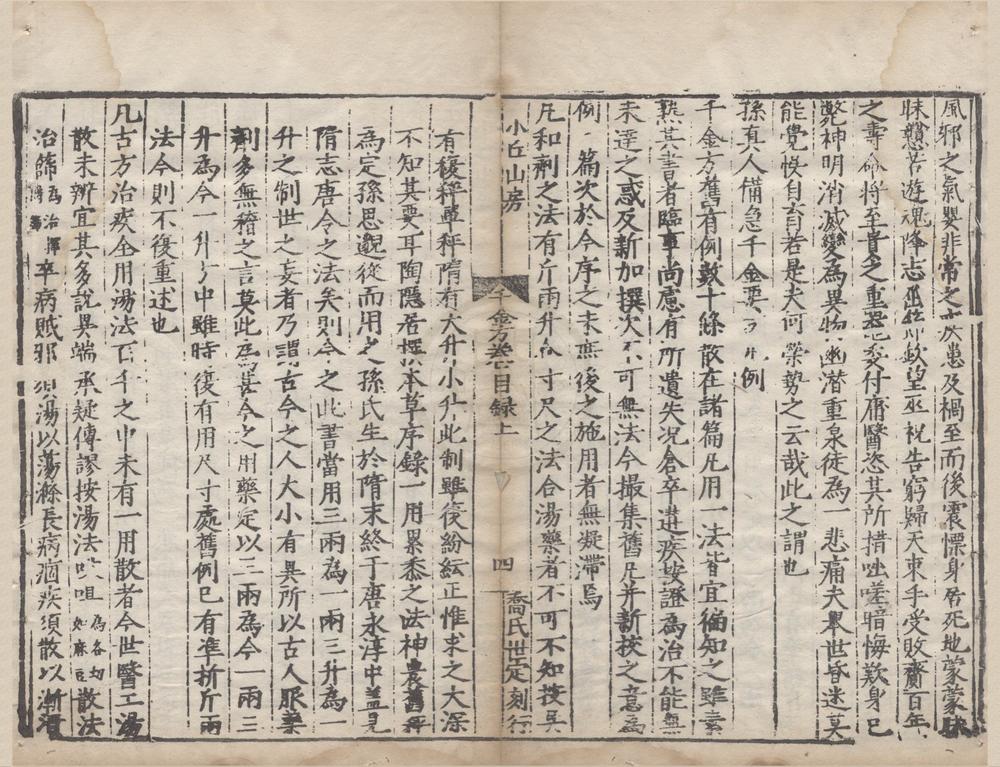 風邪之氣嬰非常之疾患及禍至而後震慄身居死地蒙蒙
昧戇苦遊魂降志巫祝政望巫祝告窮歸天束手受敗賫百年
之壽命將至貴之重器委付庸醫恣其所措咄嗟暗悔歎身已
斃神明消滅變為異物幽潛重泉徒為一悲痛夫舉世昏迷莫
能覺悞自育若是夫何榮勢之云哉此之謂也
孫真人備急千金要方凡例
千金方舊有例數十條散在諸篇凡用一法皆宜徧知之雖素
熟其書者臨事尚慮有所遺失况倉卒遘疾按證為治不能無
未達之惑及新加撰次不可無法今撮集舊凡并新校之意為
例一篇次於今序之末庶後之施用者無凝滯焉
凡和劑之法有斤兩升合寸尺之法合湯藥者不可不知按吳
小丘山房
千金方卷目録上
四
喬氏世定刻行
有複秤單秤隋有大升小升此制雖復紛紜正惟求之大深
不知其要耳陶隱居撰本草序錄一用累黍之法神農舊秤
為定孫思邈從而用之孫氏生於隋末終于唐永淳中蓋見
隋志唐令之法矣則今之此書當用三兩為一兩三升為一
升之制世之妄者乃謂古今之人大小有異所以古人服藥
劑多無稽之言莫此為甚今之用藥定以三兩為今一兩三
升為今一升方中雖時復有用尺寸處舊例已有準折斤兩
法今則不復重述也
凡古方治疾全用湯法百千之中未有一用散者今世醫工湯
散未辨宜其多說異端承疑傳謬按湯法㕮咀為各切如麻豆散法
治篩為治擇擣篩卒病賊邪須湯以蕩滌長病痼疾須散以漸漬